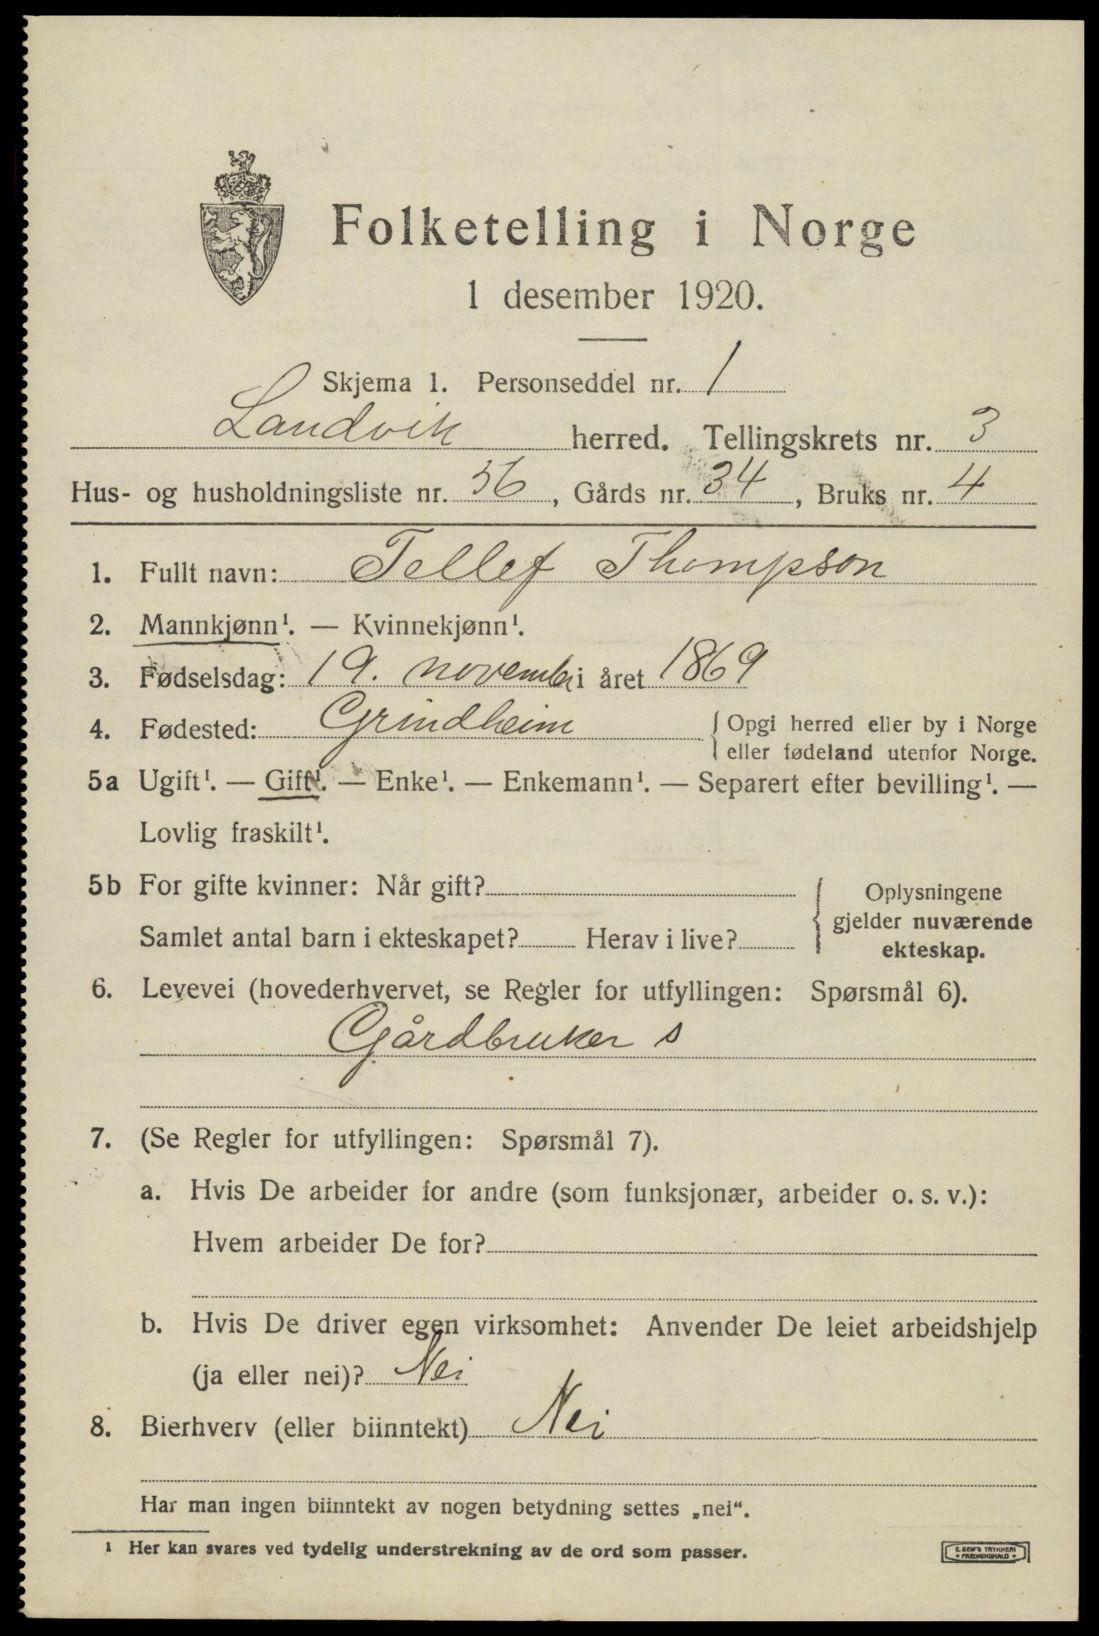 Folketelling i Norge
1 desember 1920.
Skjema 1. Personseddel nr. 1
Landvik herred. Tellingskrets nr. 3
Hus- og husholdningsliste nr. 56, Gårds nr. 34, Bruks nr. 4
1. Fullt navn: Tellef Thompson
2. Mannkjønn¹. — Kvinnekjønn¹.
3. Fødselsdag: 19. novembr i året 1869
4. Fødested: Grindheim { Opgi herred eller by i Norge
eller fødeland utenfor Norge.
5a Ugift¹. — Gift¹. — Enke¹. — Enkemann¹. — Separert efter bevilling¹. —
Lovlig fraskilt¹.
5b For gifte kvinner: Når gift?
Samlet antal barn i ekteskapet? Herav i live?
{ Oplysningene
gjelder nuværende
ekteskap.
6. Levevei (hovederhvervet, se Regler for utfyllingen: Spørsmål 6).
Gårdbruker s
7. (Se Regler for utfyllingen: Spørsmål 7).
a. Hvis De arbeider for andre (som funksjonær, arbeider o. s. v.):
Hvem arbeider De for?
b. Hvis De driver egen virksomhet: Anvender De leiet arbeidshjelp
(ja eller nei)? Nei
8. Bierhverv (eller biinntekt) Nei
Har man ingen biinntekt av nogen betydning settes „nei“.
¹ Her kan svares ved tydelig understrekning av de ord som passer.
E. SEM'S TRYKKERI
• FREDRIKSHALD •